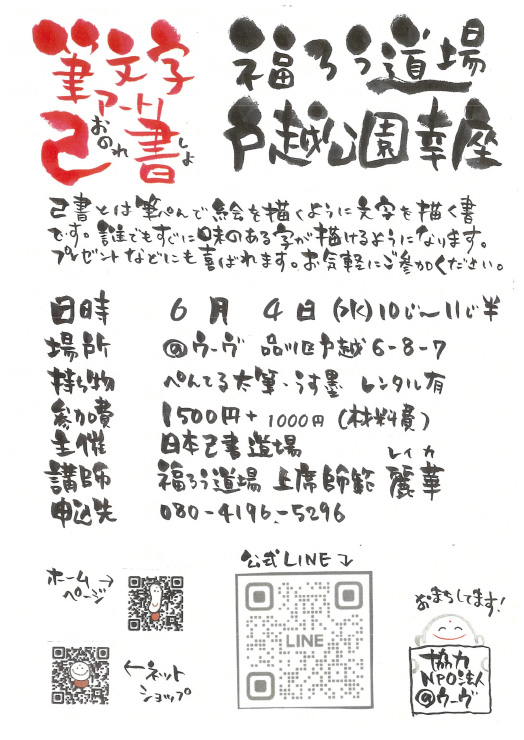 筆文字
アート!
己書
おのれ
しょ
福ろう道場
戸越公園幸座
己書とは筆ぺんで絵を描くように文字を描く書
です。誰でもすぐに味のある字が描けるようになります。
プレゼントなどにも喜ばれます。お気軽にご参加ください。
日時 6月 4日(水)10じ〜11じ半
場所 @ウーヴ 品川区戸越6-8-7
持ち物 ぺんてる太筆・うす墨 レンタル有
参加費 1500円+1000円(材料費)
主催 日本己書道場
講師 福ろう道場 上席師範 麗華
レイカ
申込先 080-4196-5296
公式LINE
ホーム
ページ
LINE
ネット
ショップ
おまちしてます!
協力
NPO法人
@ウーヴ